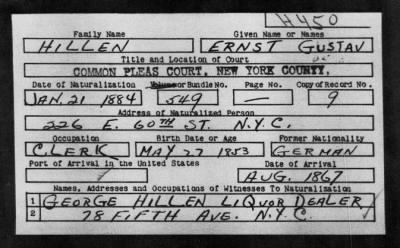 H450
Family Name Given Name or Names
HILLEN ERNST GUSTAV
Title and Location of Court
COMMON PLEAS COURT, NEW YORK COUNTY.
Date of Naturalization Volume or Bundle No. Page No. Copy of Record No.
JAN. 21 1884 549 — 9
Address of Naturalized Person
226 E. 60TH ST. N.Y.C.
Occupation Birth Date or Age Former Nationality
CLERK MAY 27 1853 GERMAN
Port of Arrival in the United States Date of Arrival
AUG. 1867
Names, Addresses and Occupations of Witnesses To Naturalization
1 GEORGE HILLEN LIQUOR DEALER
2 78 FIFTH AVE. N.Y.C.